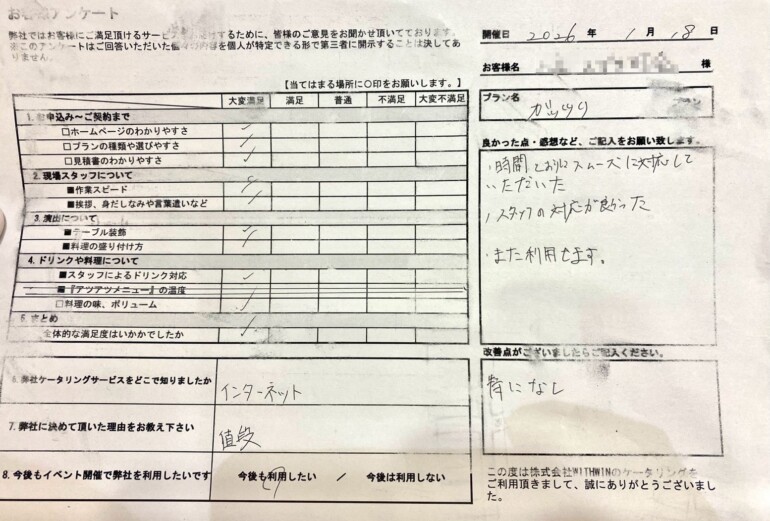 お客様アンケート
弊社ではお客様にご満足頂けるサービスを するために、皆様のご意見をお聞かせ頂いております。
※このアンケートはご回答いただいた個々の内容を個人が特定できる形で第三者に開示することは決してあ
りません。
開催日 2026 年 1 月 18 日
お客様名 様
【当てはまる場所に〇印をお願いします。】
プラン名
ガッツリ プラン
大変満足 満足 普通 不満足 大変不満足
1. お申込み～ご契約まで
□ホームページのわかりやすさ
□プランの種類や選びやすさ
□見積書のわかりやすさ
2. 現場スタッフについて
■作業スピード
■挨拶、身だしなみや言葉遣いなど
3. 演出について
■テーブル装飾
■料理の盛り付け方
4. ドリンクや料理について
■スタッフによるドリンク対応
■『アツアツメニュー』の温度
□料理の味、ボリューム
5. まとめ
全体的な満足度はいかがでしたか
良かった点・感想など、ご記入をお願い致します。
・時間どおりにスムーズに対応して
いただいた
・スタッフの対応が良かった
・また利用せます。
改善点がございましたらご記入ください。
特になし
6. 弊社ケータリングサービスをどこで知りましたか
インターネット
7. 弊社に決めて頂いた理由をお教え下さい
値段
8. 今後もイベント開催で弊社を利用したいです
今後も利用したい / 今後は利用しない
この度は株式会社WITHWINのケータリングを
ご利用頂きまして、誠にありがとうございまし
た。